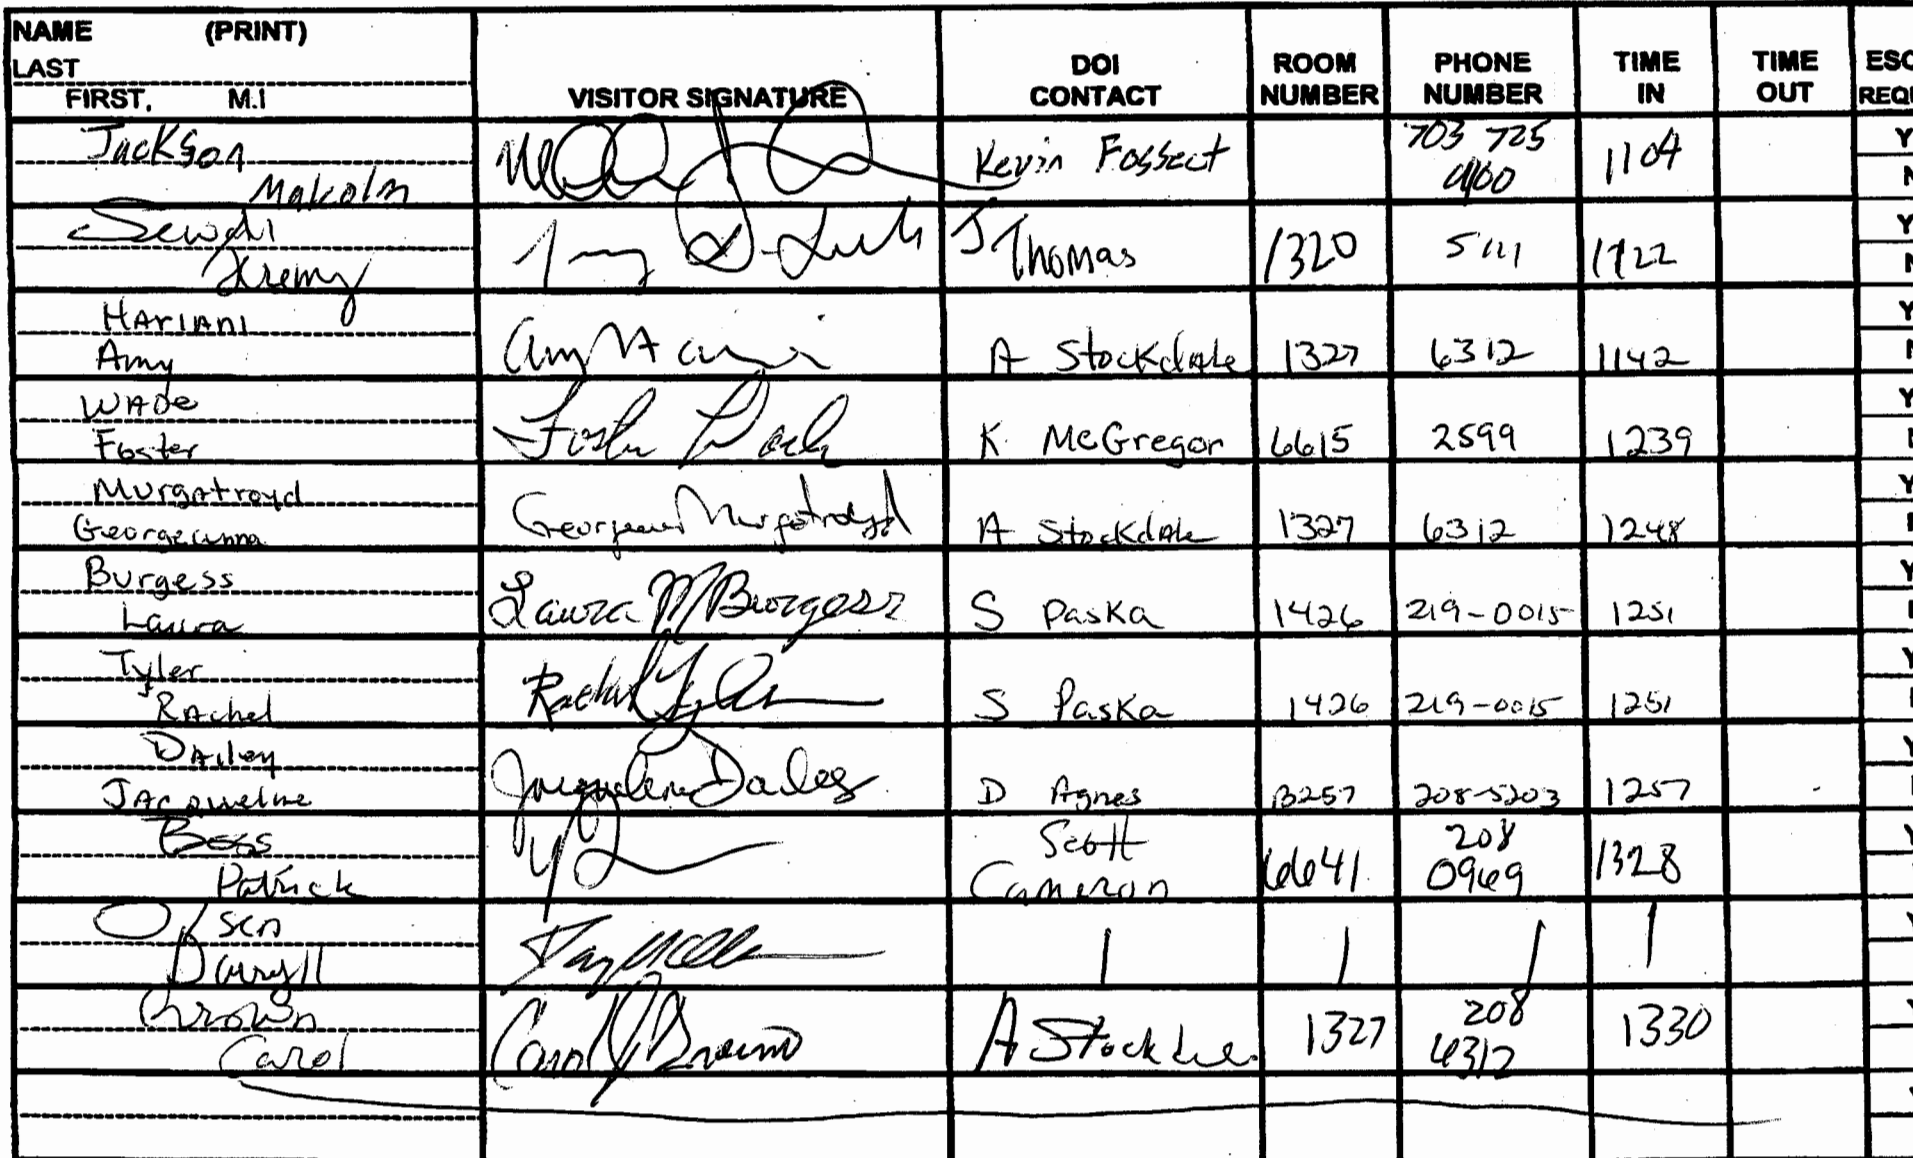 NAME (PRINT)
LAST
FIRST, M.I
VISITOR SIGNATURE
DOI CONTACT
ROOM NUMBER
PHONE NUMBER
TIME IN
TIME OUT
ESC
REQU
Jackson
Malcolm
Kevin
703 725
1104
Y
N
Jeremy
J Thomas
1320
5111
1122
Y
N
HARIANI
Amy
A Stockdale 1327 6312 1142
Y
WADE
Foster
K McGregor 6615 2599 1239
Y
Murgatroyd
Georgeanna
Murgatroyd
A Stockdale 1327 6312 1248
Y
Burgess
Laura
Laura M Burgess
S Paska 1426 219-0015 1251
Y
Tyler
Rachel
Rachel Tyler
S Paska 1426 219-0015 1251
Y
Dailey
Jacqueline
Jacqueline Dailey
D Agnes B257 208-5203 1257
Y
Patrick
Scott
Cameron
6641
208
0969
1328
Y
Olsen
Darryll
Y
Brown
Carol
Carol J Brown
A
1327
208
6312
1330
Y